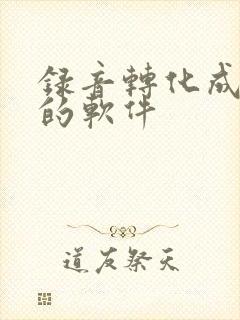 錄音轉化成
的軟件
道友祭天